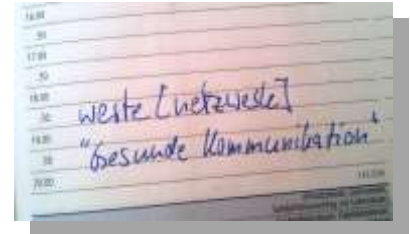 16.00
30
17.00
30
18.00
30
19.00
30
20.00
weste [netzweste]
"Gesunde Kommunikation"